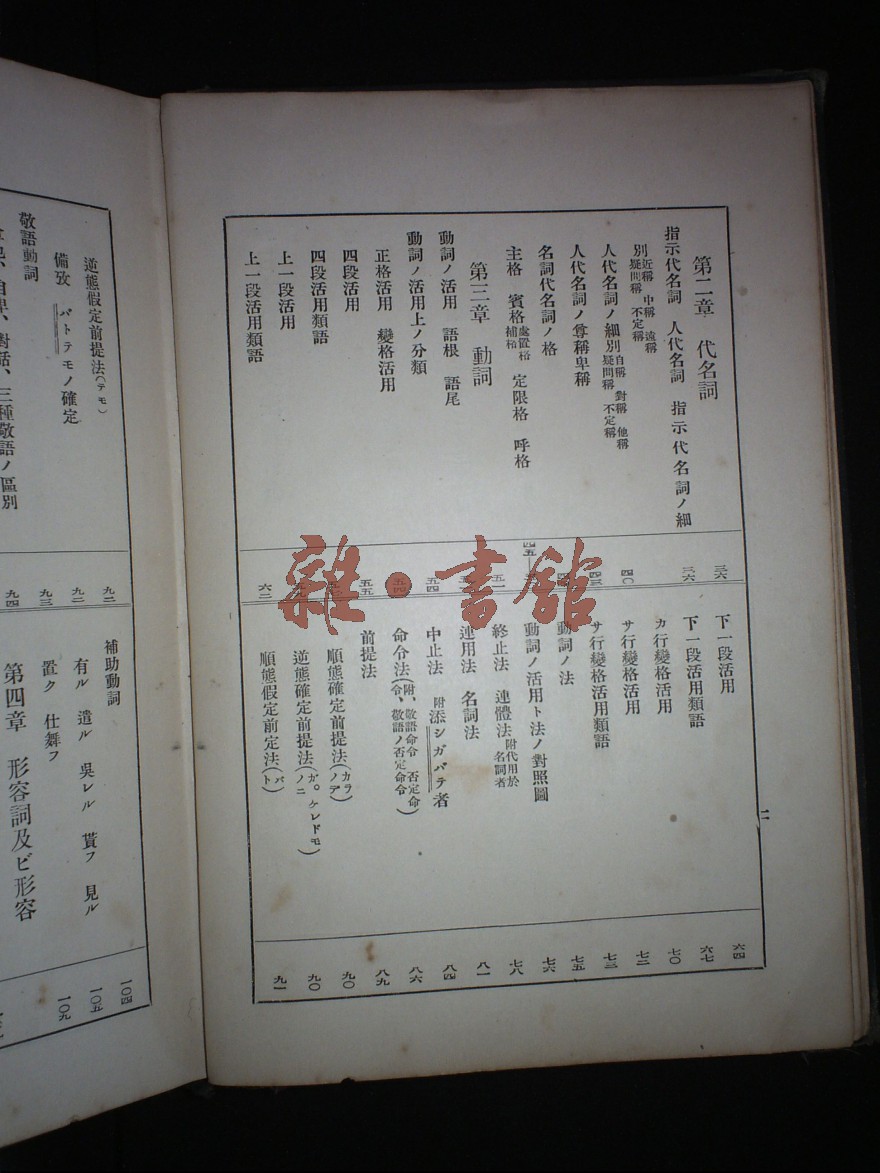 第二章 代名詞 三六
指示代名詞 人代名詞 指示代名詞ノ細 三六
別 近稱 中稱 遠稱
疑問稱 不定稱
人代名詞ノ細別 自稱 對稱 他稱 四〇
疑問稱 不定稱
人代名詞ノ尊稱卑稱
名詞代名詞ノ格
主格 賓格 處置格 定限格 呼格
補格
第三章 動詞
動詞ノ活用 語根 語尾
動詞ノ活用上ノ分類 五四
正格活用 變格活用
四段活用 五五
四段活用類語
上一段活用
上一段活用類語 六二
下一段活用 六四
下一段活用類語 六七
カ行變格活用 七〇
サ行變格活用 七二
サ行變格活用類語 七三
動詞ノ法 七五
動詞ノ活用ト法ノ對照圖 七六
終止法 連體法 附代用於 七八
名詞者
連用法 名詞法 八一
中止法 附添シガバテ者 八四
命令法(附、敬語命令 否定命 八六
令、敬語ノ否定命令)
前提法 八九
順態確定前提法(カラ 九〇
ノデ)
逆態確定前提法(ガ。ケレドモ 九〇
ノニ)
順態假定前定法(バ 九一
ト)
二
逆態假定前提法(テモ) 九二
備攷 バトテモノ確定 九二
敬語動詞 九三
自卑、對話、三種敬語ノ區別 九四
補助動詞 一〇四
有ル 遣ル 吳レル 貰フ 見ル 一〇五
置ク 仕舞フ 一〇九
第四章 形容詞及ビ形容
雜·書館